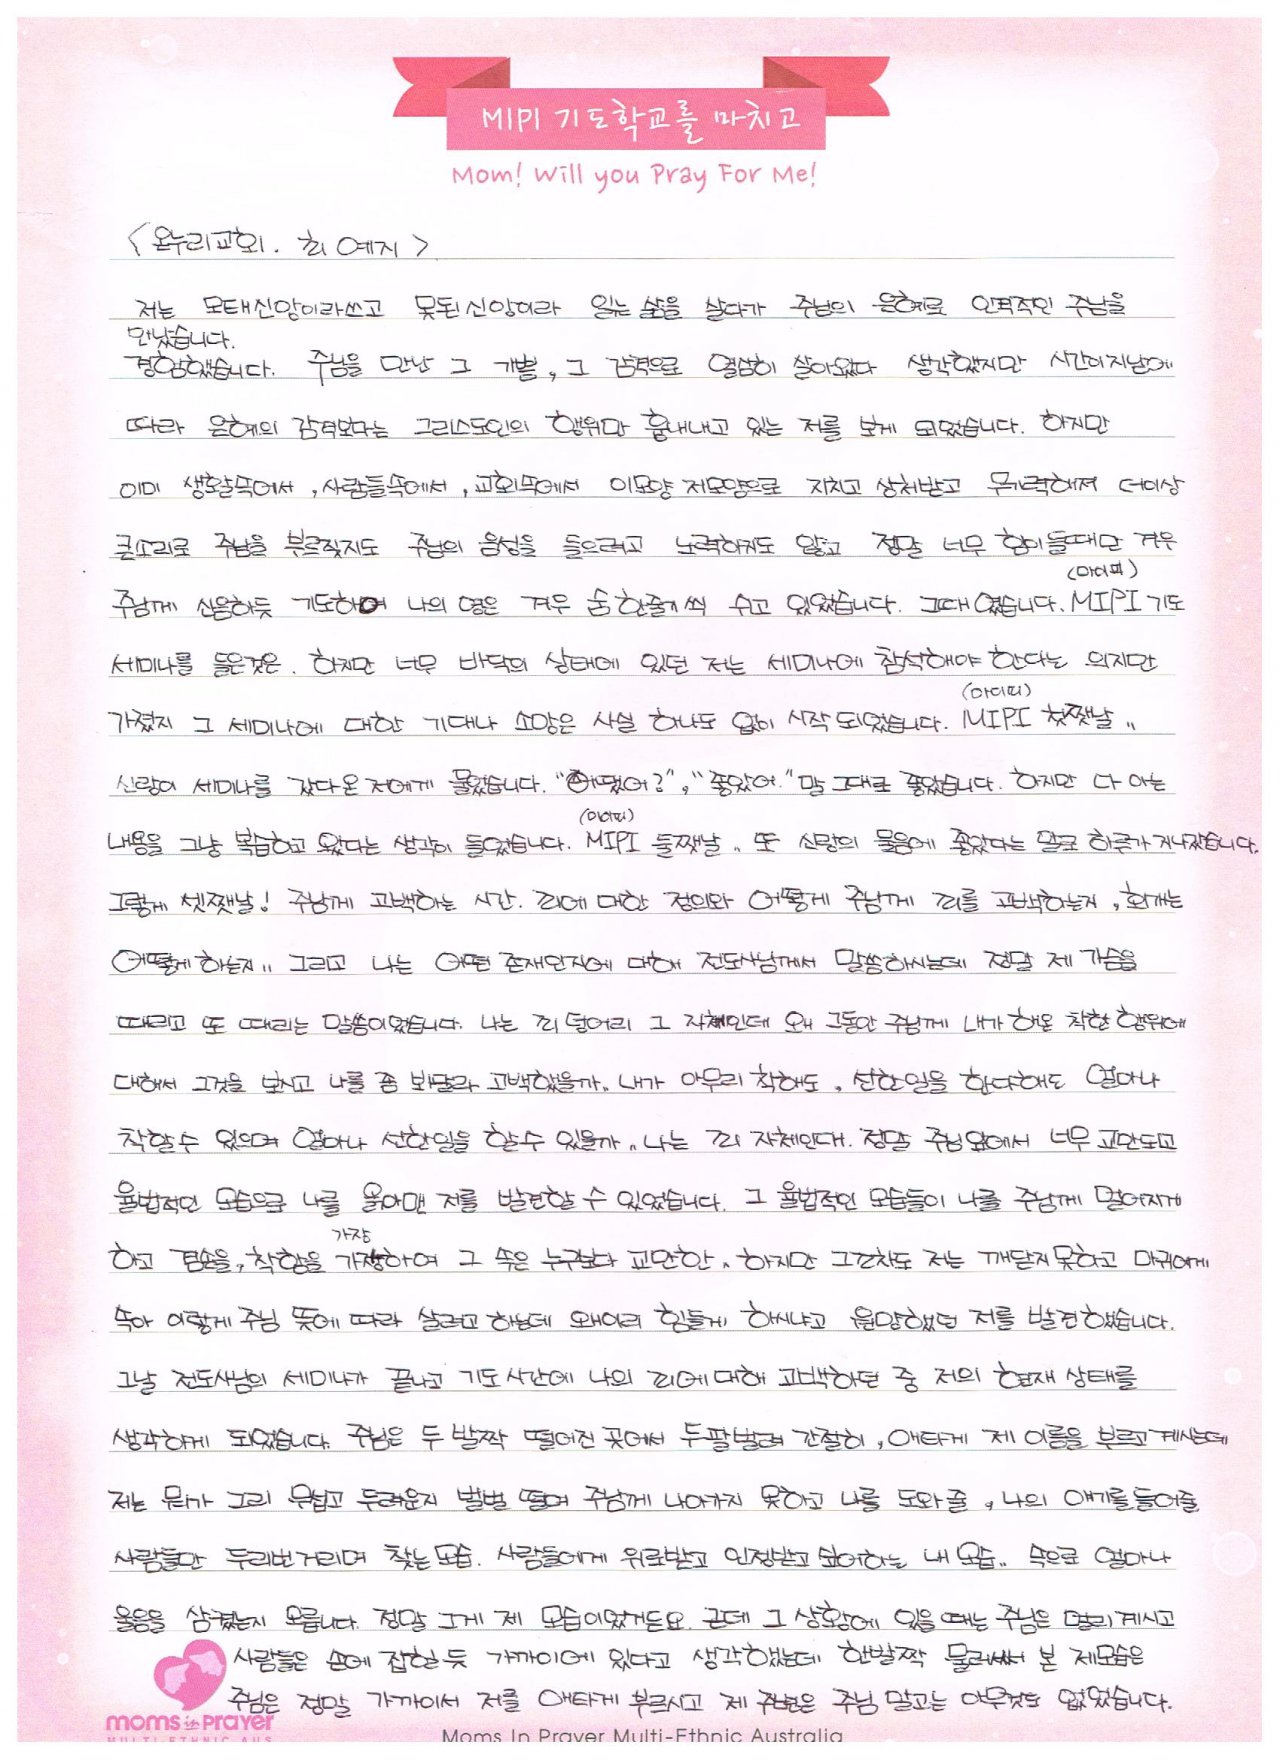 MIPI 기도학교를 마치고
Mom! Will you Pray For Me!
<온누리교회. 최예지>
저는 모태신앙이라쓰고 못된신앙이라 읽는 삶을 살다가 주님의 은혜로 인격적인 주님을
만났습니다.
경험했습니다. 주님을 만난 그 기쁨, 그 감격으로 열심히 살아왔다 생각했지만 시간이지남에
따라 은혜의 감격보다는 그리스도인의 행위만 흉내내고 있는 저를 보게 되었습니다. 하지만
이미 생활속에서, 사람들속에서, 교회속에서 이모양 저모양으로 지치고 상처받고 무기력해져 더이상
큰소리로 주님을 부르짖지도 주님의 음성을 들으려고 노력하지도 않고 정말 너무 힘이들때만 겨우
(마이피)
주님께 신음하듯 기도하며 나의 영은 겨우 숨 한줄기씩 쉬고 있었습니다. 그때 였습니다. MIPI 기도
세미나를 들은것은. 하지만 너무 바닥의 상태에 있던 저는 세미나에 참석해야 한다는 의지만
(마이피)
가졌지 그 세미나에 대한 기대나 소망은 사실 하나도 없이 시작되었습니다. MIPI 첫쨋날..
신랑이 세미나를 갔다온 저에게 물었습니다. "어땠어?", "좋았어." 말 그대로 좋았습니다. 하지만 다 아는
(마이피)
내용을 그냥 복습하고 왔다는 생각이 들었습니다. MIPI 둘쨋날.. 또 신랑의 물음에 좋았다는 말로 하루가 지나갔습니다.
그렇게 셋쨋날! 주님께 고백하는 시간. 죄에 대한 정의와 어떻게 주님께 죄를 고백하는지, 회개는
어떻게 하는지.. 그리고 나는 어떤 존재인지에 대해 전도사님께서 말씀하시는데 정말 제 가슴을
때리고 또 때리는 말씀이었습니다. 나는 죄 덩어리 그 자체인데 왜 그동안 주님께 내가 해온 착한 행위에
대해서 그것을 보시고 나를 좀 봐달라 고백했을까.. 내가 아무리 착해도, 선한일을 한다해도 얼마나
착할수 있으며 얼마나 선한일을 할수 있을까.. 나는 죄 자체인데. 정말 주님 앞에서 너무 교만도고
율법적인 모습으로 나를 옭아맨 저를 발견할 수 있었습니다. 그 율법적인 모습들이 나를 주님께 멀어지게
가장
하고 겸손을, 착함을 가장하여 그 속은 누구보다 교만한.. 하지만 그것차도 저는 깨닫지 못하고 마귀에게
속아 이렇게 주님 뜻에 따라 살려고 하는데 왜이리 힘들게 하시냐고 원망했던 저를 발견했습니다.
그날 전도사님의 세미나가 끝나고 기도시간에 나의 죄에대해 고백하던 중 저의 현재 상태를
생각하게 되었습니다. 주님은 두 발짝 떨어진 곳에서 두팔벌려 간절히, 애타게 제 이름을 부르고 계시는데
저는 뭐가 그리 무섭고 두려운지 벌벌 떨며 주님께 나아가지 못하고 나를 도와 줄, 나의 얘기를 들어줄
사람들만 두리번거리며 찾는 모습. 사람들에게 위로받고 인정받고 싶어하는 내 모습.. 속으로 얼마나
울음을 삼켰는지 모릅니다. 정말 그게 제 모습이었거든요. 근데 그 상황에 있을 때는 주님은 멀리계시고
사람들은 손에 잡힐듯 가까이에 있다고 생각했는데 한발짝 물러서서 본 제모습은
주님은 정말 가까이서 저를 애타게 부르시고 제 주변은 주님 말고는 아무것도 없었습니다.
moms in PRayer
MULTI-ETHNIC AUS
Moms In Prayer Multi-Ethnic Australia